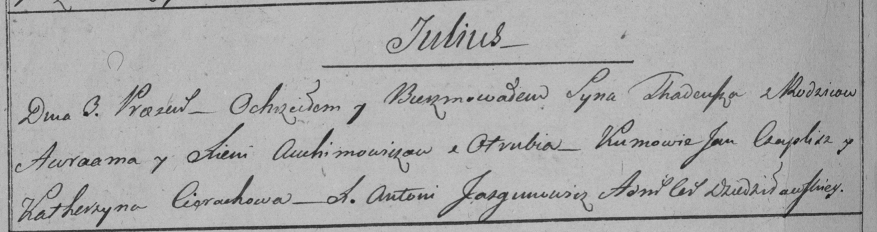 Julius
Dnia 3. Prezent Ochrzciłem y Bierzmowałem Syna Thadeusza z Rodzicow
Awraama y Kseni Auchimowiczow z Otrubia Kumowie Jan Czaplisz y
Katherzyna Cierachowa X. Antoni Jazgunowicz Admł Ceł Dziedziłowskiey.